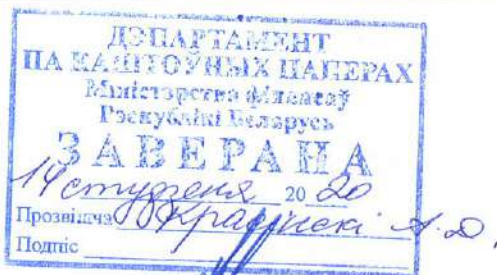 ДЭПАРТАМЕНТ
ПА КАШТОЎНЫХ ПАПЕРАХ
Міністэрства фінансаў
Рэспублікі Беларусь
ЗАВЕРАНА
14 студзеня 2020
Прозвішча Красінскі А.О.
Подпіс